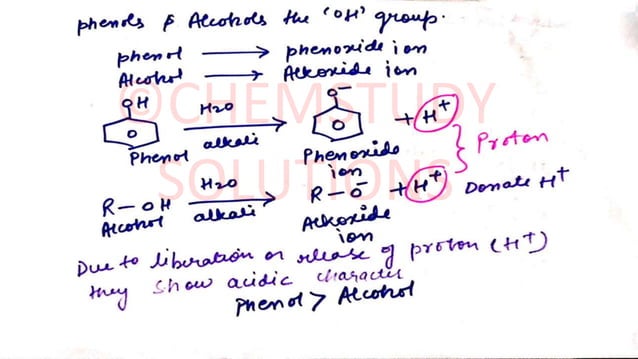 phenols & Alcohols the 'OH' group.
phenol → phenoxide ion
Alcohol → Alkoxide ion
©CHEMSTUDY
SOLUTIONS
OH H2O O⁻
alkali + H⁺
Phenol Phenoxide ion
} Proton
R–OH H2O R–O⁻ + H⁺ Donate H⁺
Alcohol alkali Alkoxide ion
Due to liberation or release of proton (H⁺)
they show acidic character
Phenol > Alcohol